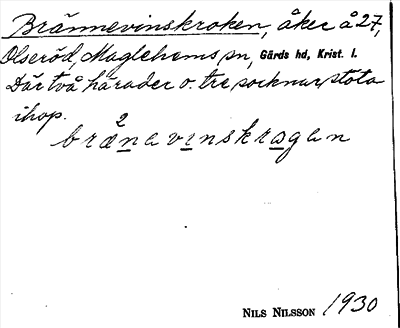 Brännevinskroken, åker å 27,
Olseröd, Maglehems sn, Gärds hd, Krist. l.
Där två härader o. tre socknar stöta
ihop.
bränavinskrogan
NILS NILSSON 1930